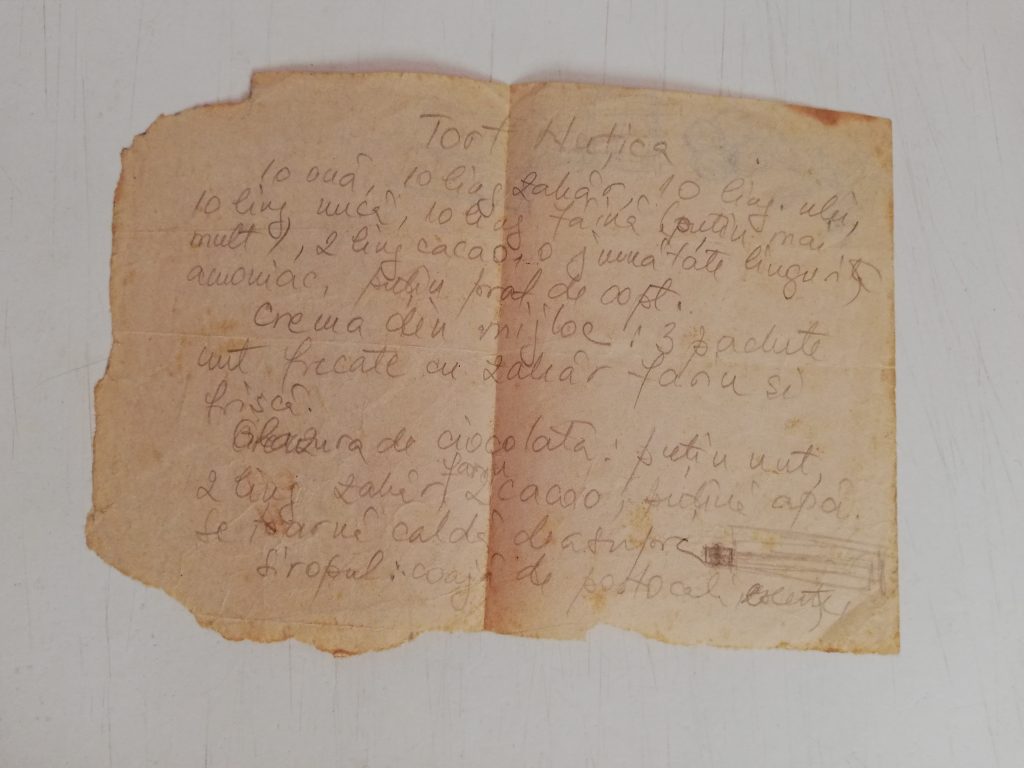 Tort Nuțica
10 ouă, 10 ling zahăr, 10 ling. ulei,
10 ling nucă, 10 ling făină (puțin mai
mult), 2 ling cacao, o jumătate linguriță
amoniac, puțin praf de copt.
Crema din mijloc: 3 pachete
unt frecate cu zahăr farin si
frișcă.
Glazura de ciocolată: puțin unt,
farin
2 ling zahăr, 2 cacao, puțină apă.
Se toarnă caldă deasupra
Siropul: coajă de portocală, esență,